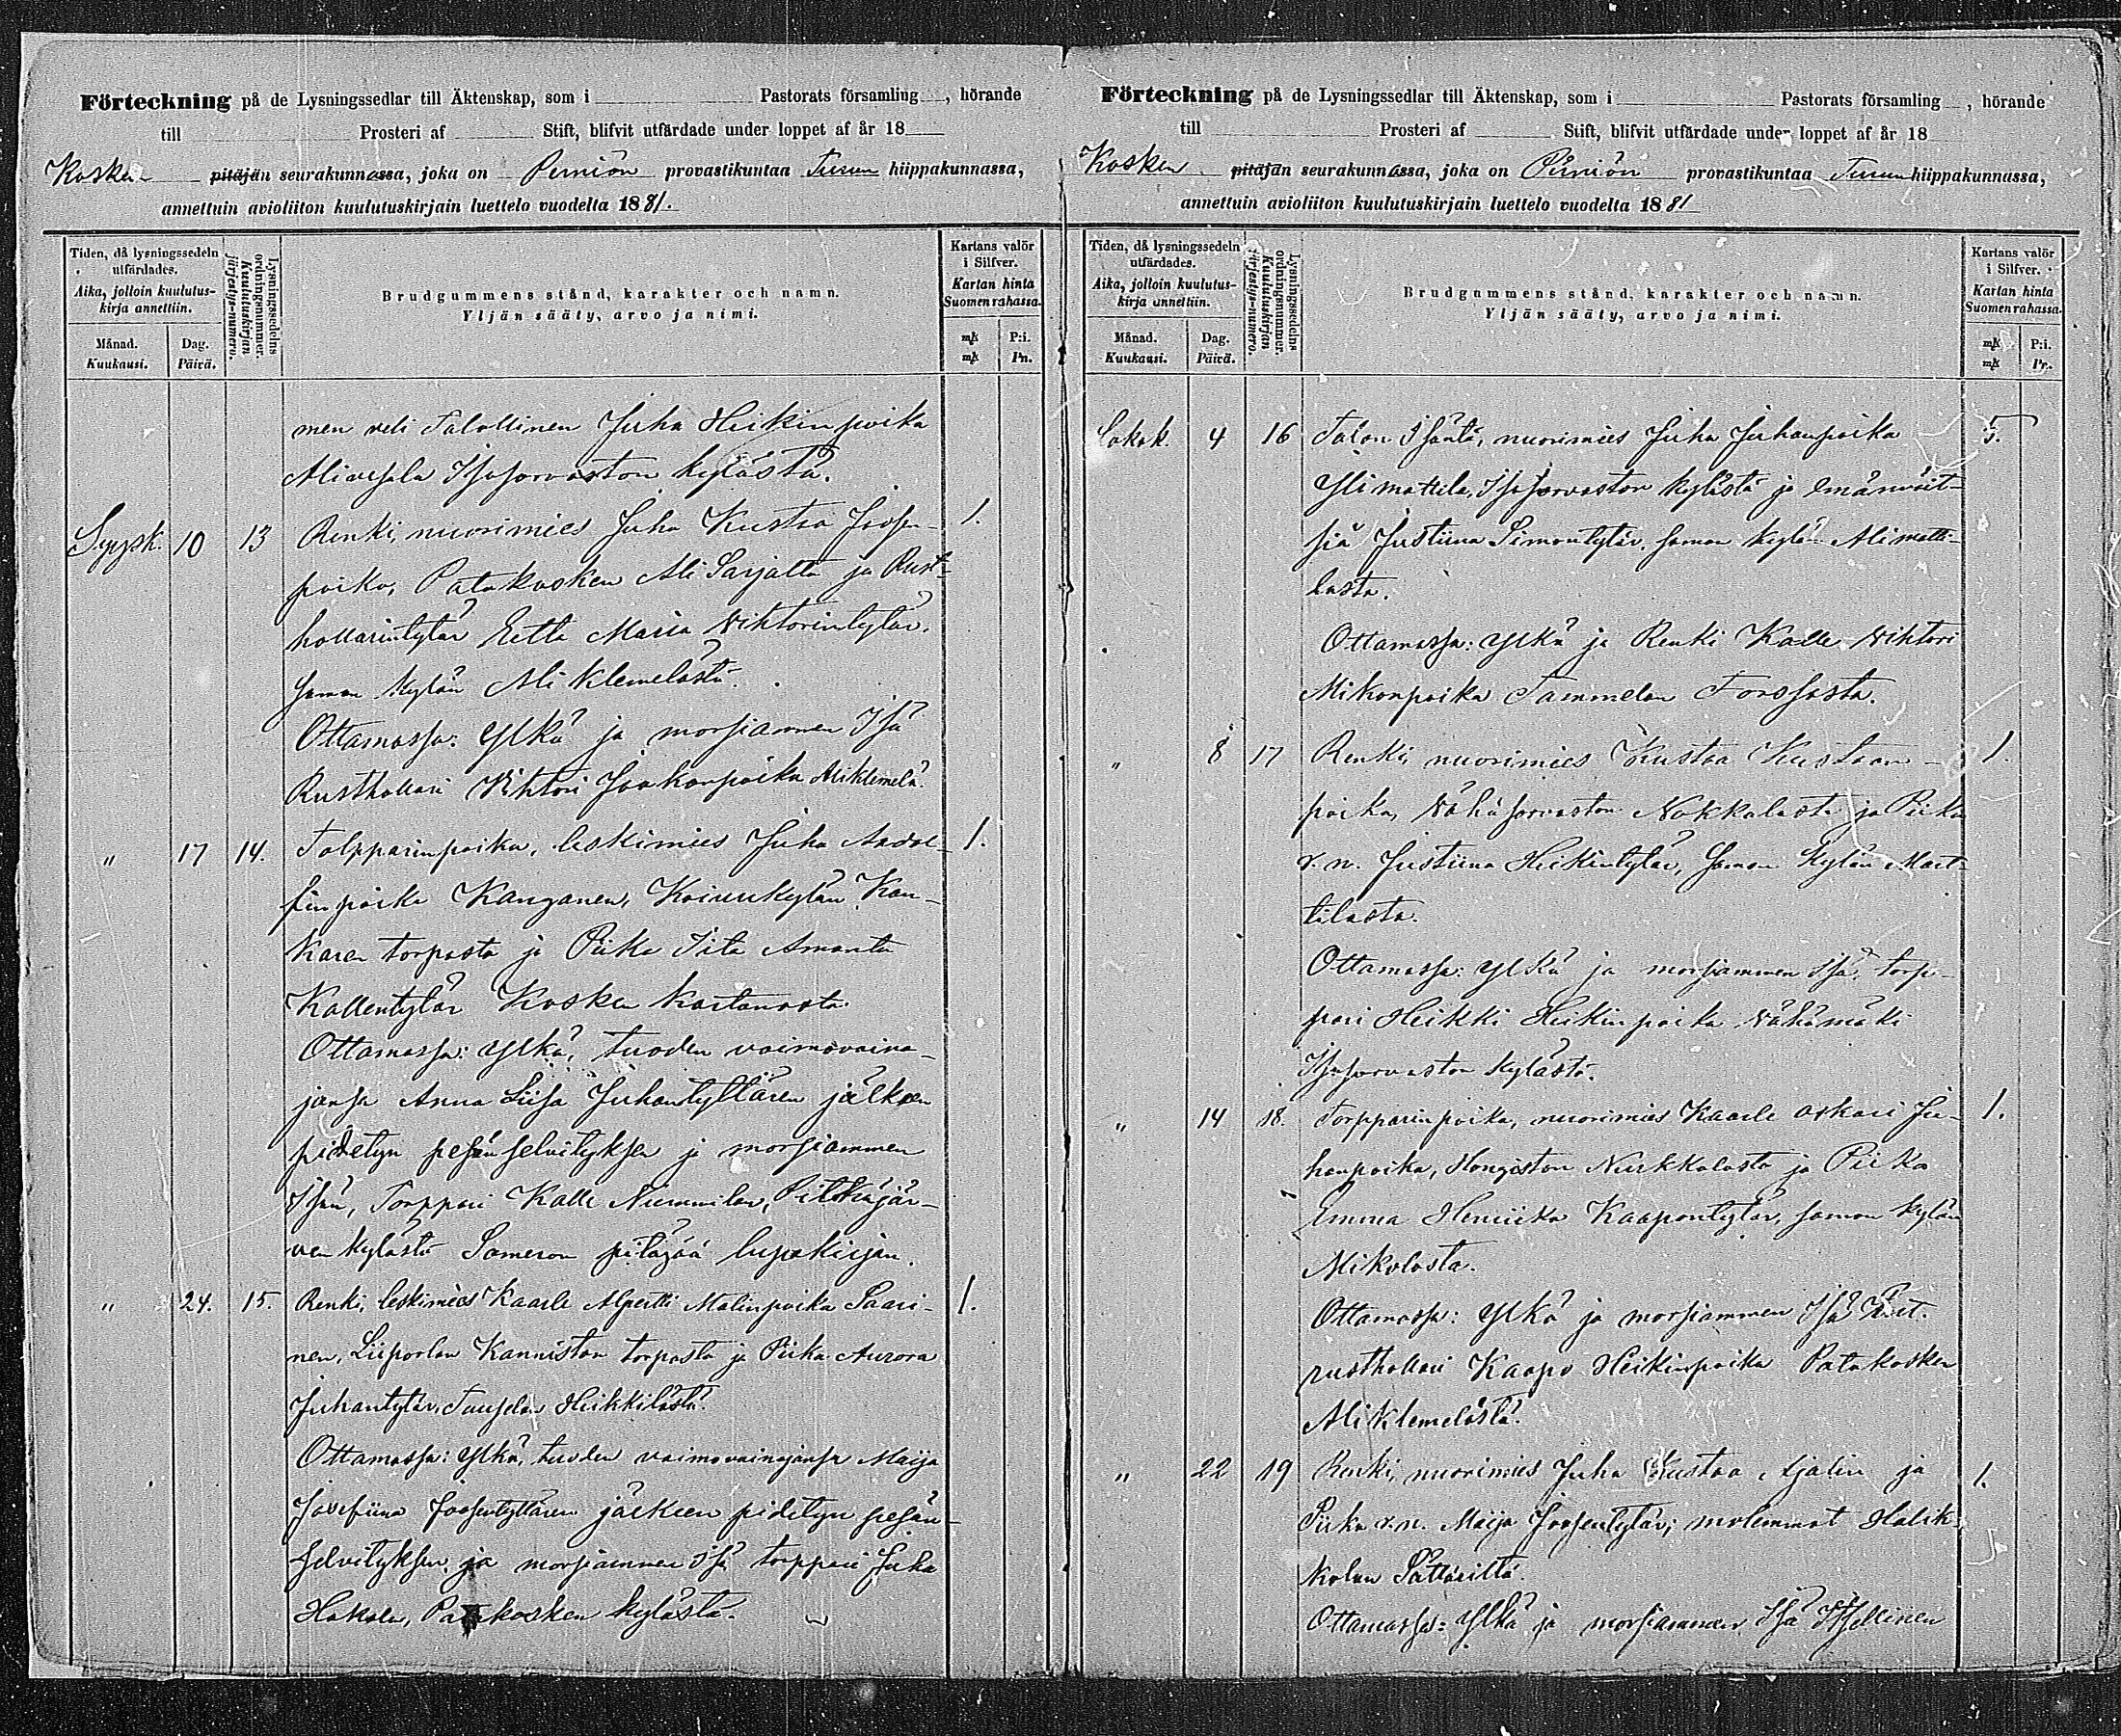 Förteckning på de Lysningssedlar till Äktenskap, som i Pastorats församling, hörande
till Prosteri af Stift, blifvit utfärdade under loppet af år 18
Kosken pitäjän seurakunnassa, joka on Perniön provastikuntaa Turun hiippakunnassa,
annettuin avioliiton kuulutuskirjain luettelo vuodelta 1881.
Tiden, då lysningssedeln utfärdades.
Aika, jolloin kuulutuskirja annettiin.
Månad. Kuukausi.
Dag. Päivä.
Lysningssedelns ordningsnummer.
Kuulutuskirjan järjestys-numero.
Brudgummens stånd, karakter och namn.
Yljän sääty, arvo ja nimi.
Kartans valör i Silfver.
Kartan hinta Suomen rahassa.
mk P:i.
mk Pn.
men veli Talollinen Juha Heikinpoika
Aliavesala Isosorvaston kylästä.
Syysk. 10 13 Renki, nuorimies Juha Kustaa Joosen- 1.
poika, Patakosken Ali Sarjalta ja Rust-
hollarintytär Eetla Maria Vihtorintytär,
saman kylän Ali Klemelästä.
Ottamassa: Ylkä ja morsiammen Isä
Rusthollari Vihtori Jaakonpoika Aliklemelä.
" 17 14. Torpparinpoika, leskimies Juha Aadol- 1.
finpoika Kanganen, Koivukylän Kan-
karen torpasta ja Piika Iita Amanta
Kallentytär Kosken kartanosta.
Ottamassa: Ylkä, tuoden vaimovaina-
jansa Anna Liisa Juhantyttären jälkeen
pidetyn pesänselvityksen ja morsiammen
Isän, Torppari Kalle Nummilan, Pitkäjär-
ven kylästä Someron pitäjää lupakirjan.
" 24. 15. Renki, leskimies Kaarle Alpertti Matinpoika Saari- 1.
nen, Liiporlan Kanniston torpasta ja Piika Aurora
Juhantytär, Tauselan Heikkilästä.
Ottamassa: Ylkä, tuoden vaimovainajansa Maija
Josefiina Joosentyttären jälkeen pidetyn pesän-
selvityksen, ja morsiammen Isä torppari Juha
Hakala, Patakosken kylästä.
Förteckning på de Lysningssedlar till Äktenskap, som i Pastorats församling, hörande
till Prosteri af Stift, blifvit utfärdade under loppet af år 18
Kosken pitäjän seurakunnassa, joka on Perniön provastikuntaa Turun hiippakunnassa,
annettuin avioliiton kuulutuskirjain luettelo vuodelta 1881
Tiden, då lysningssedeln utfärdades.
Aika, jolloin kuulutuskirja annettiin.
Månad. Kuukausi.
Dag. Päivä.
Lysningssedelns ordningsnummer.
Kuulutuskirjan järjestys-numero.
Brudgummens stånd, karakter och namn.
Yljän sääty, arvo ja nimi.
Kartans valör i Silfver.
Kartan hinta Suomen rahassa.
mk P:i.
mk Pr.
Lokak. 4 16 Talon Isäntä, nuorimies Juha Juhanpoika 5.
Ylimattila, Isosorvaston kylästä ja emänwöit-
siä Justiina Simontytär, saman kylän Alimatti-
lasta.
Ottamassa: Ylkä ja Renki Kalle Vihtori
Mikonpoika Tammelan Forssasta.
" 8 17 Renki, nuorimies Kustaa Kustaan- 1.
poika, Vähäsorvaston Nokkalasta ja Piika
v. n. Justiina Heikintytär, saman kylän Mart-
tilasta.
Ottamassa: Ylkä ja morsiammen Isä, torp-
pari Heikki Heikinpoika Vähämäki
Isosorvaston kylästä.
" 14 18. Torpparinpoika, nuorimies Kaarle Oskari Ju- 1.
hanpoika, Hongiston Nurkkalasta ja Piika
Emma Henriika Kaapontytär, saman kylän
Mikolasta.
Ottamassa: Ylkä ja morsiammen Isä
rusthollari Kaapo Heikinpoika Patakosken
Aliklemelästä.
" 22 19 Renki, nuorimies Juha Kustaa Ajalin ja 1.
Piika v. n. Maija Joosentytär; molemmat Halik-
kolan Pättäriltä.
Ottamassa: Ylkä ja morsiammen Isä Itsellinen